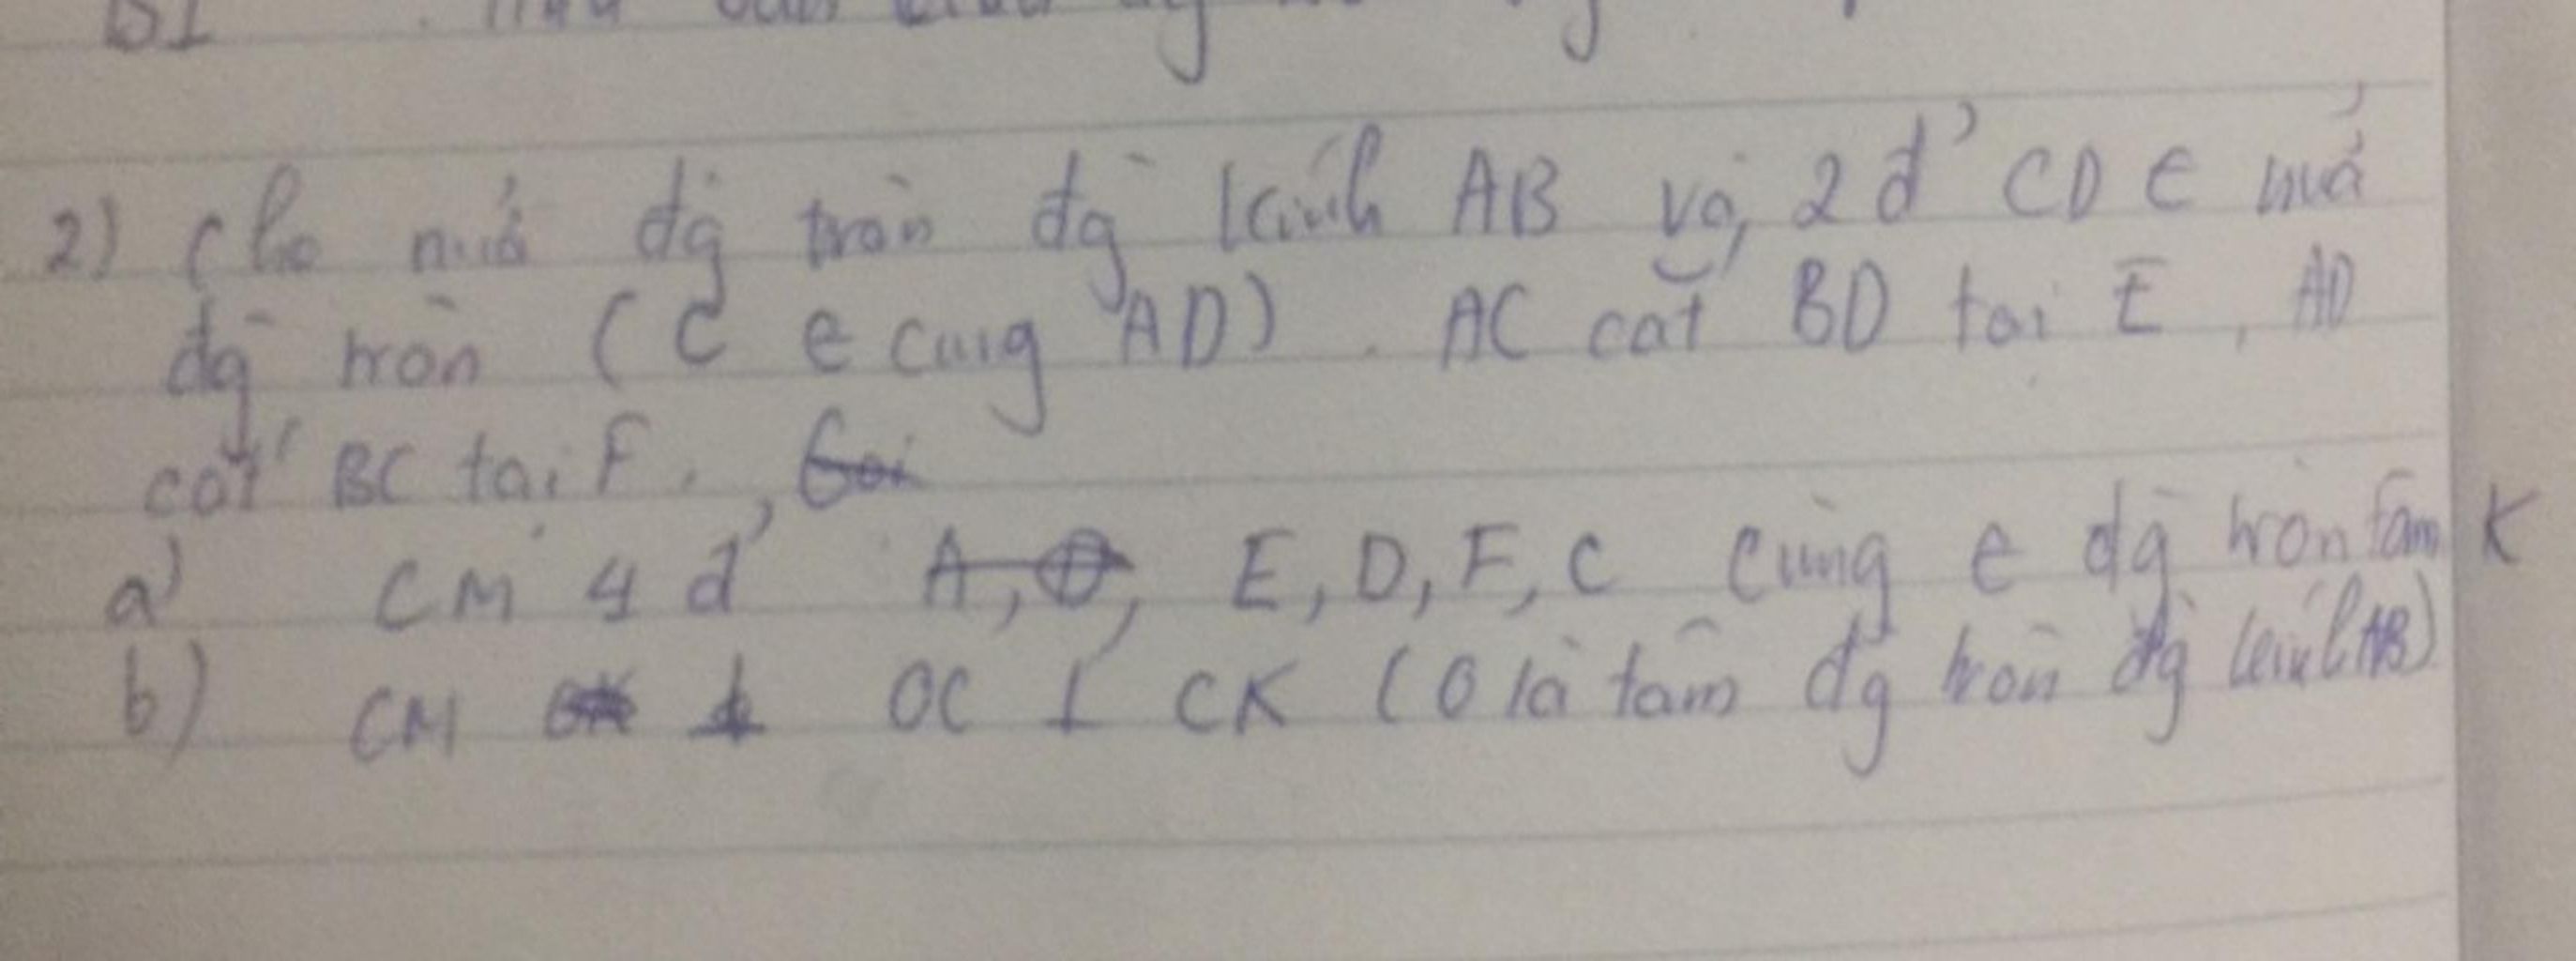 2) Cho nửa đg tròn đg kính AB và 2 đ' CD ∈ nửa
đg tròn (C ∈ cung AD). AC cắt BD tại E, AD
cắt BC tại F.
a) CM 4 đ' E, D, F, C cùng ∈ đg tròn tâm K
b) CM OC ⊥ CK (O là tâm đg tròn đg kính AB)